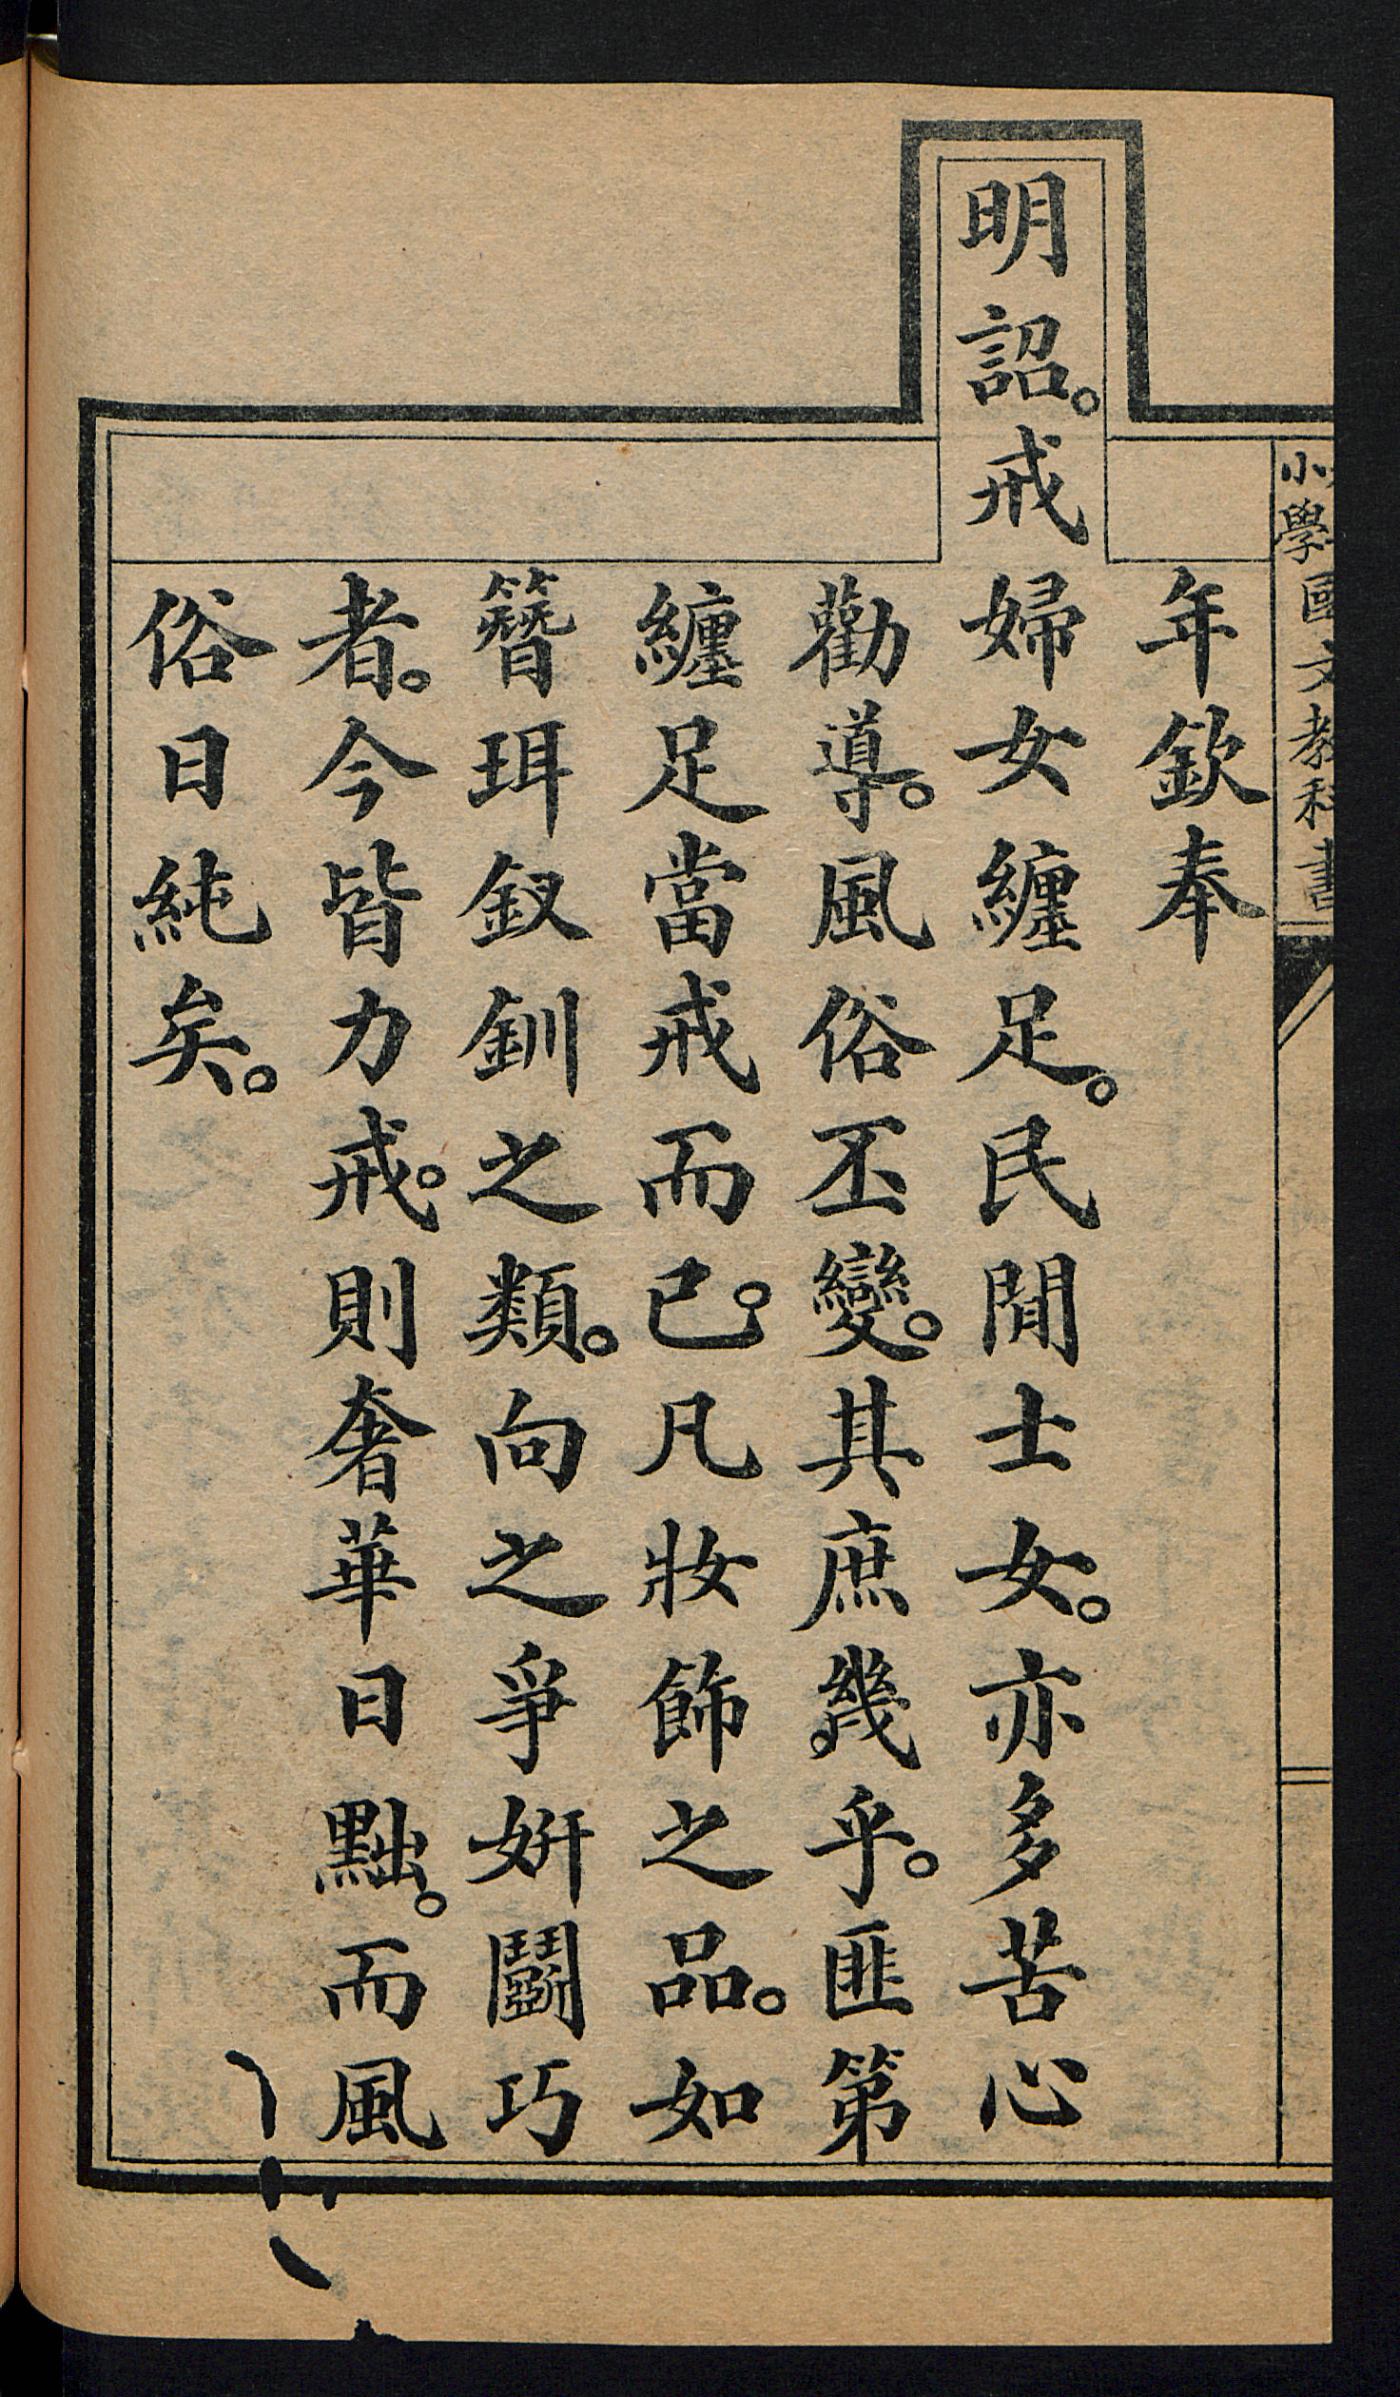 小學國文教科書
年欽奉
明詔。戒婦女纏足。民間士女。亦多苦心
勸導。風俗丕變。其庶幾乎。匪第
纏足當戒而已。凡妝飾之品。如
簪珥釵釧之類。向之爭妍鬬巧
者。今皆力戒。則奢華日黜。而風
俗日純矣。